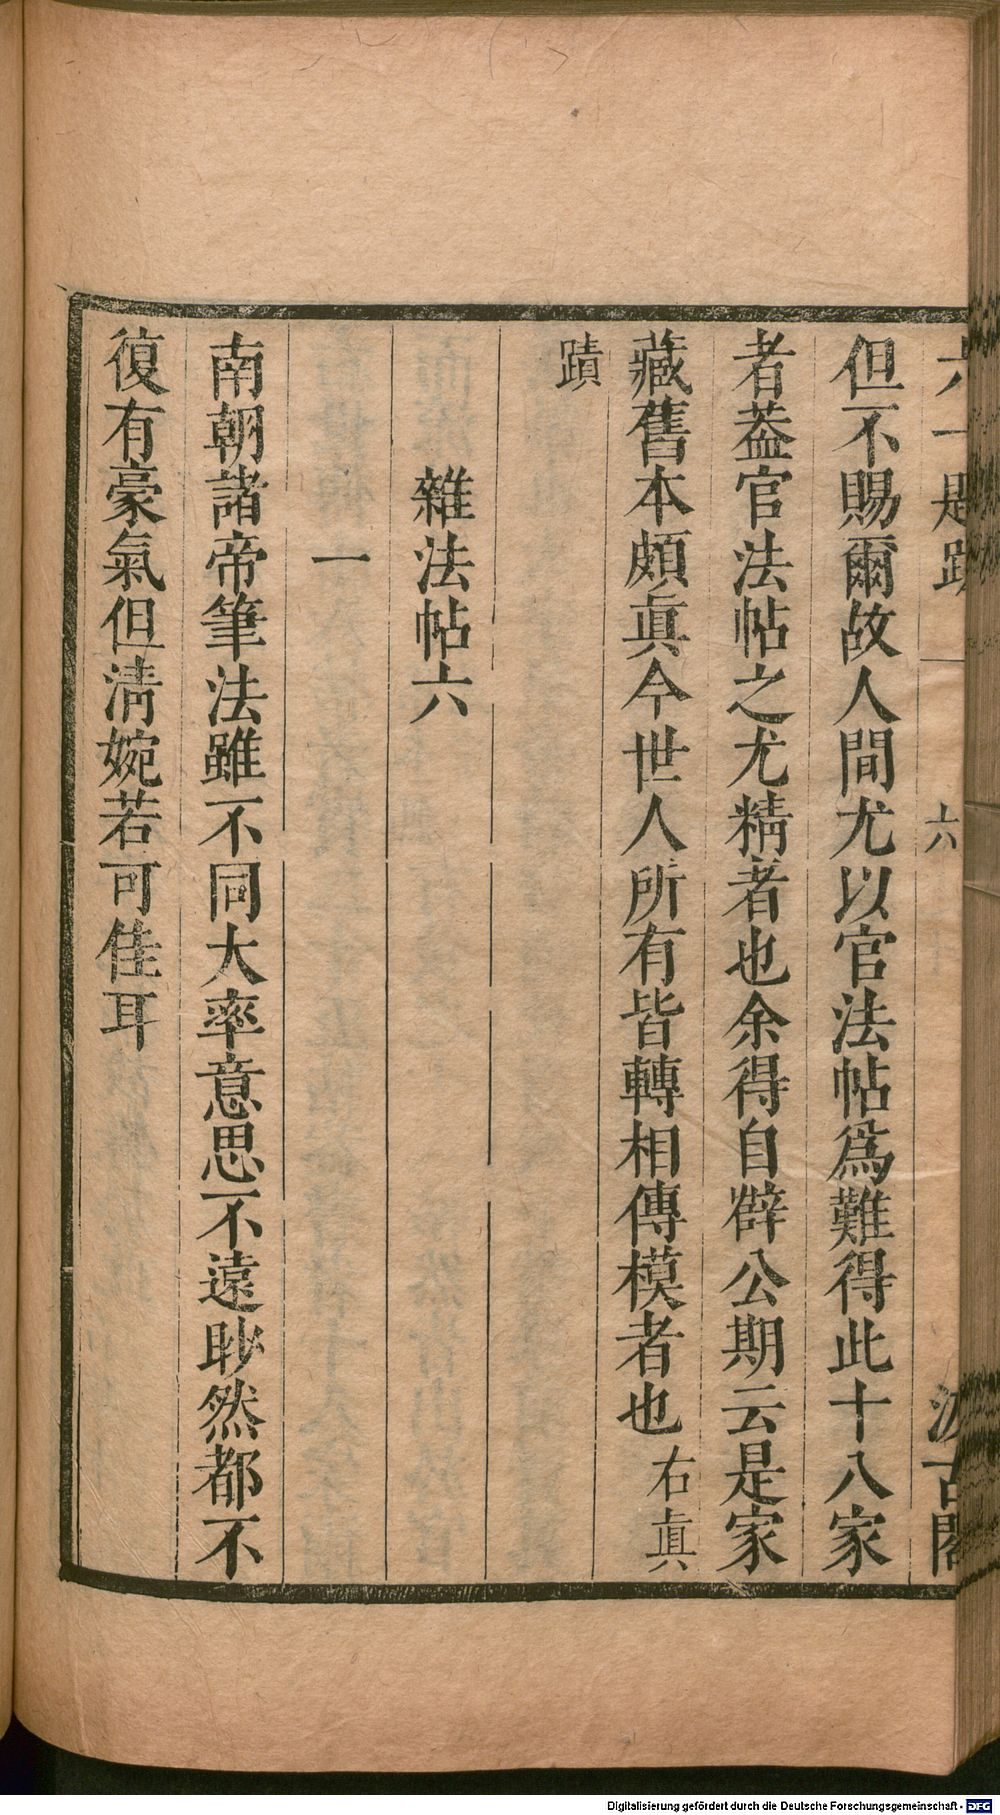 六一題跋 六 汲古閣
但不賜爾故人間尤以官法帖爲難得此十八家
者葢官法帖之尤精者也余得自薛公期云是家
藏舊本頗眞今世人所有皆轉相傳模者也右眞
蹟
雜法帖六
一
南朝諸帝筆法雖不同大率意思不遠眇然都不
復有豪氣但淸婉若可佳耳
Digitalisierung gefördert durch die Deutsche Forschungsgemeinschaft - DFG